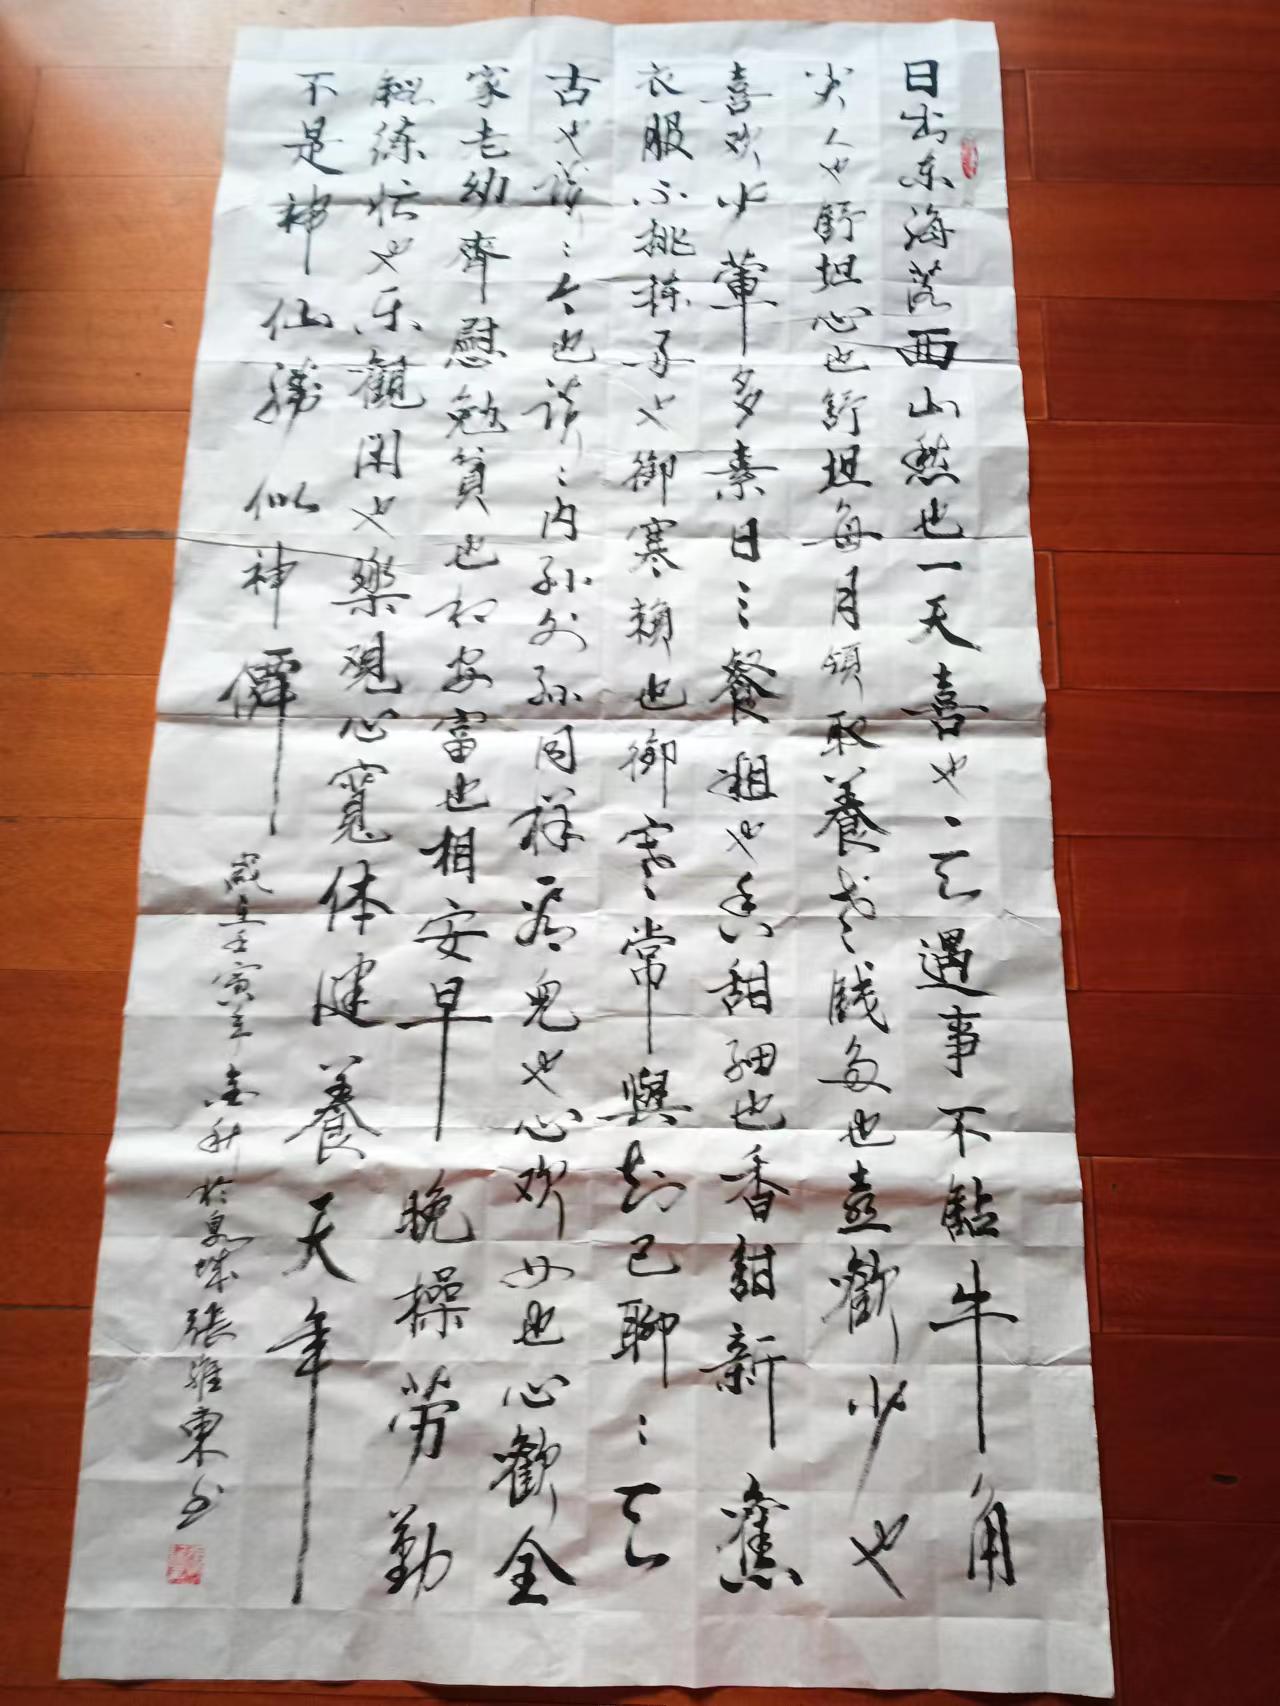 日出东海落西山愁也一天喜也一天遇事不鑽牛角
尖人也舒坦心也舒坦每月領取養老錢多也喜歡少也
喜欢少葷多素日三餐粗也香甜細也香甜新舊
衣服不挑拣好也御寒賴也御寒常與知己聊聊天
古也谈谈今也谈谈内孙外孙同样看児也心欢女也心歡全
家老幼齊慰勉貧也相安富也相安早晚操劳勤
鍛练忙也乐觀闲也樂觀心寬体健養天年
不是神仙勝似神僊
歲在壬寅年金秋於泉城張維東书